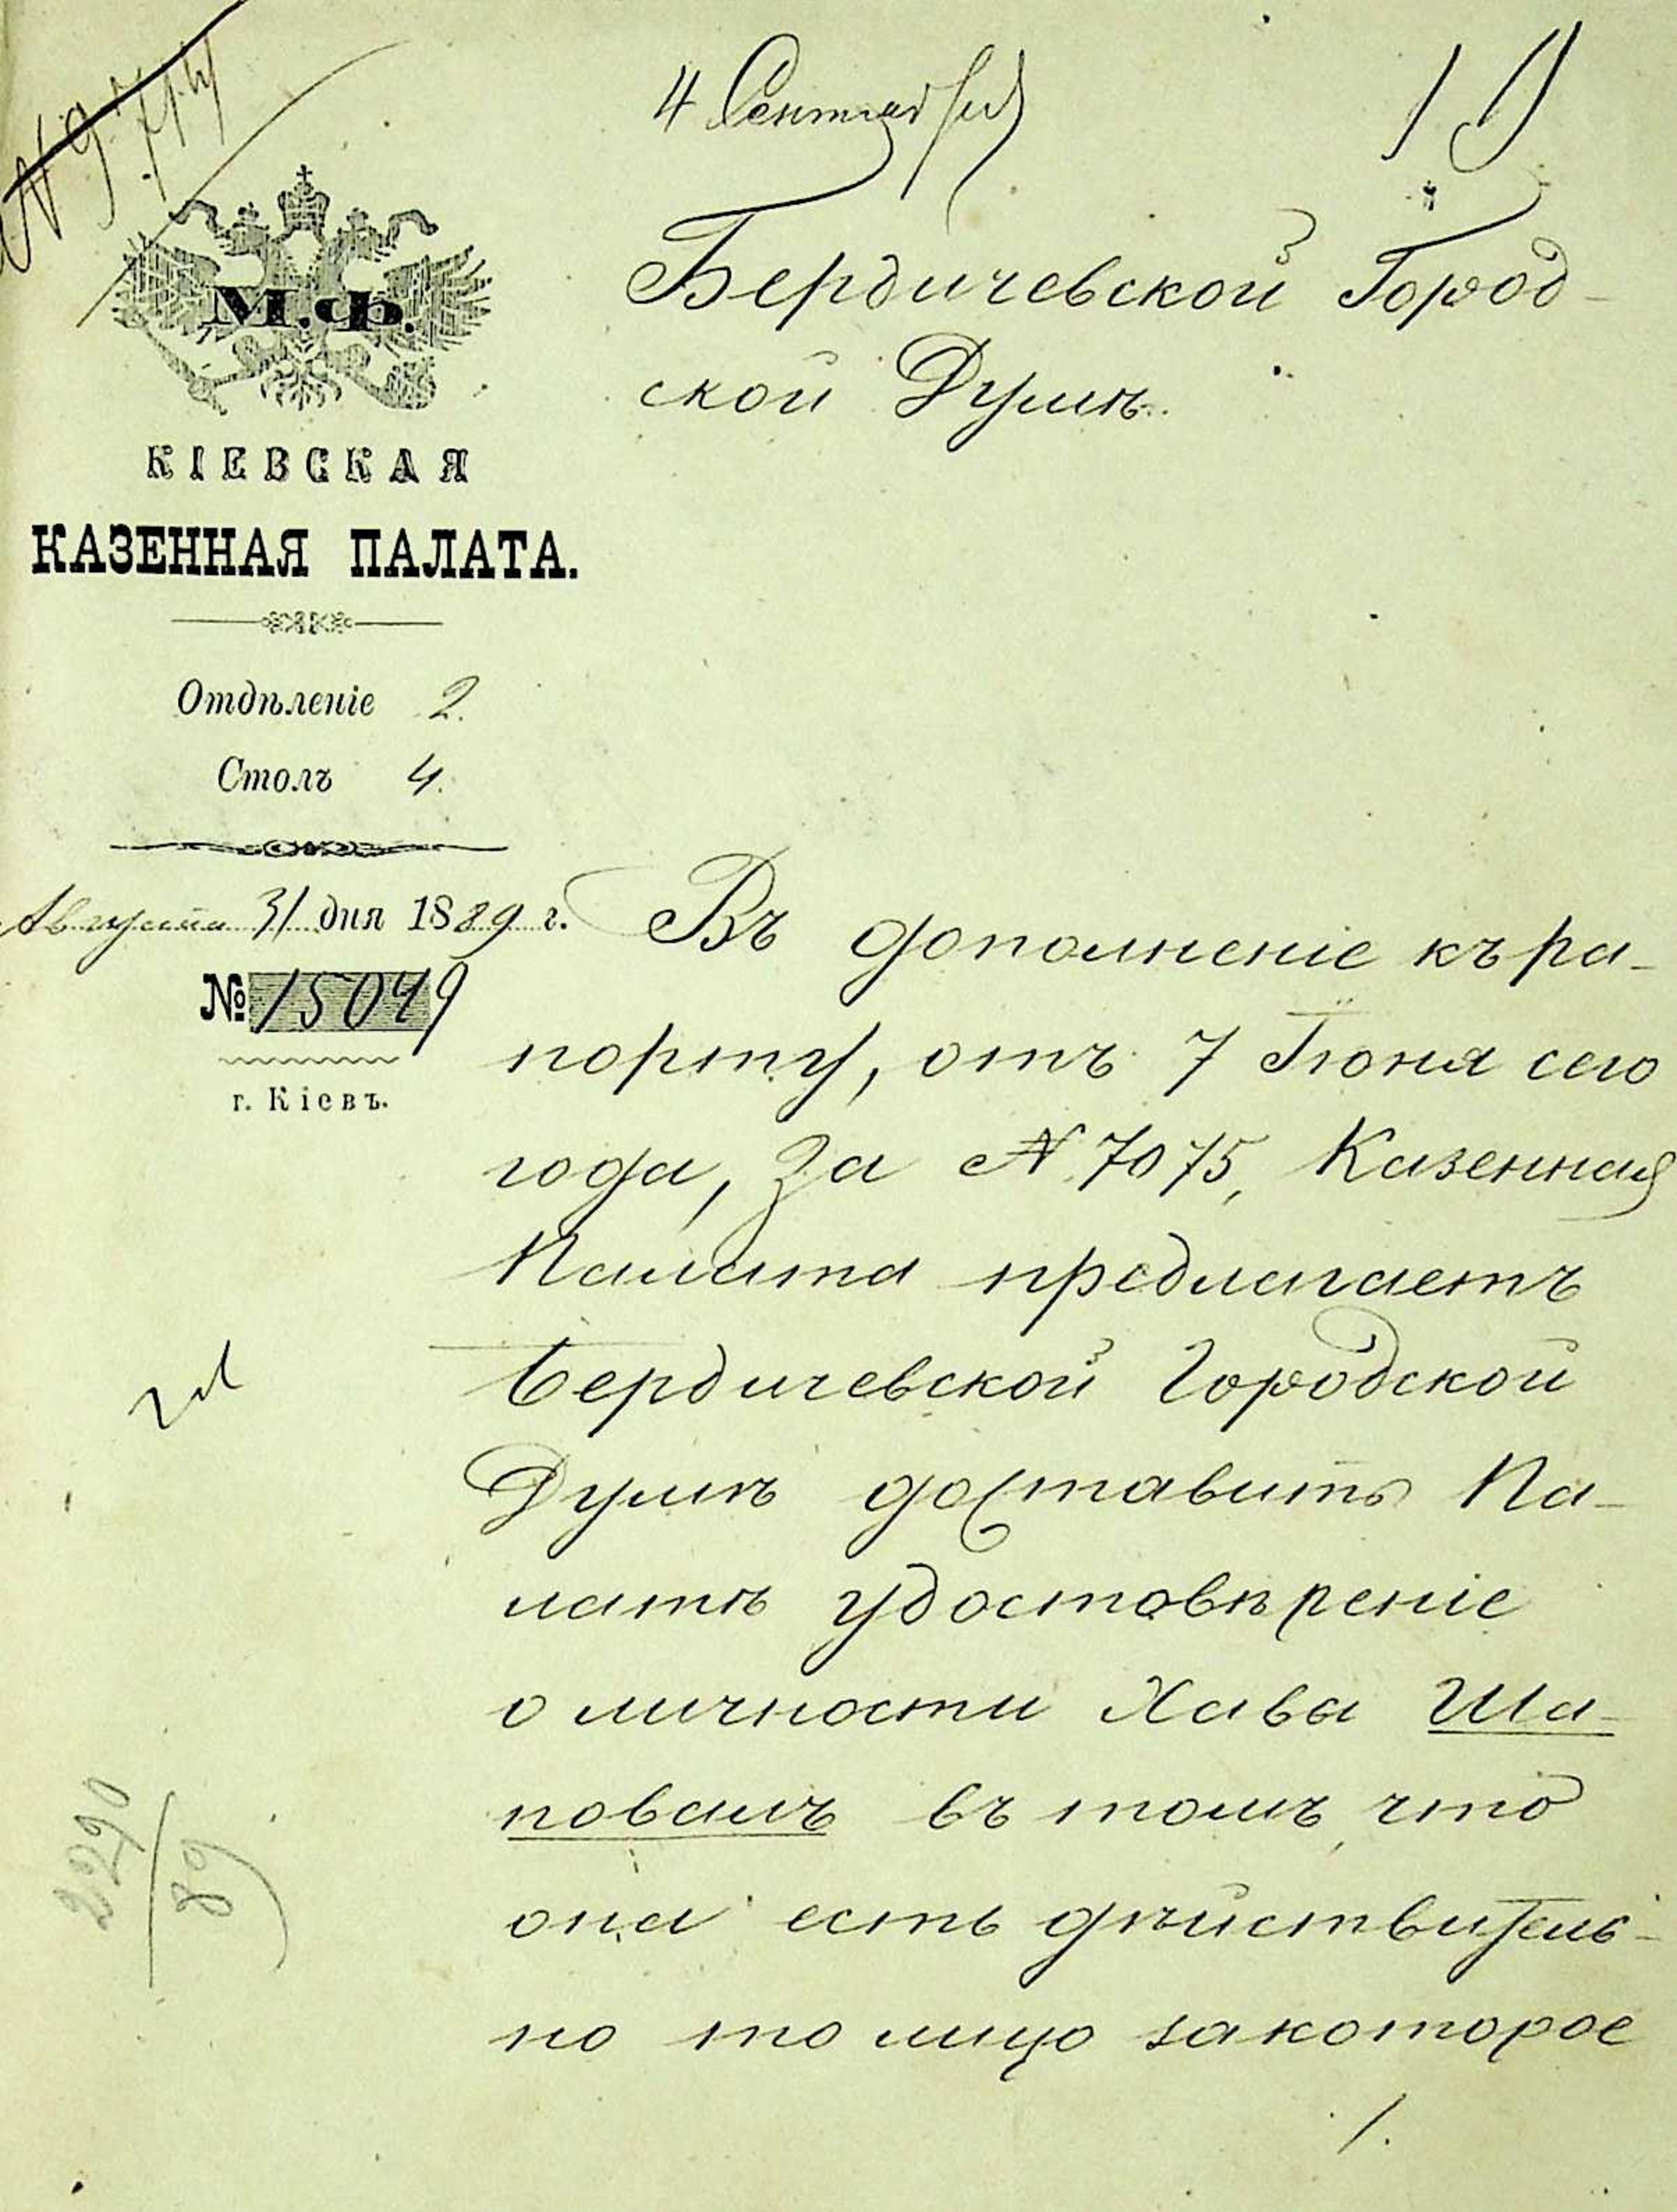 4 Сентября
М. Ф.
КІЕВСКАЯ
КАЗЕННАЯ ПАЛАТА.
Отдѣленіе 2.
Столъ 4.
Августа 31 дня 1889 г.
№ 15049
г. Кіевъ.
Бердичевской Город-
ской Думѣ.
Въ дополненіе къ ра-
порту, отъ 7 Іюня сего
года, за № 7075, Казенная
Палата предлагаетъ
Бердичевской Городской
Думѣ доставить Па-
латѣ удостовѣреніе
о личности Хава Ша-
повалъ въ томъ, что
она есть дѣйствитель-
но то лицо за которое
2290
89